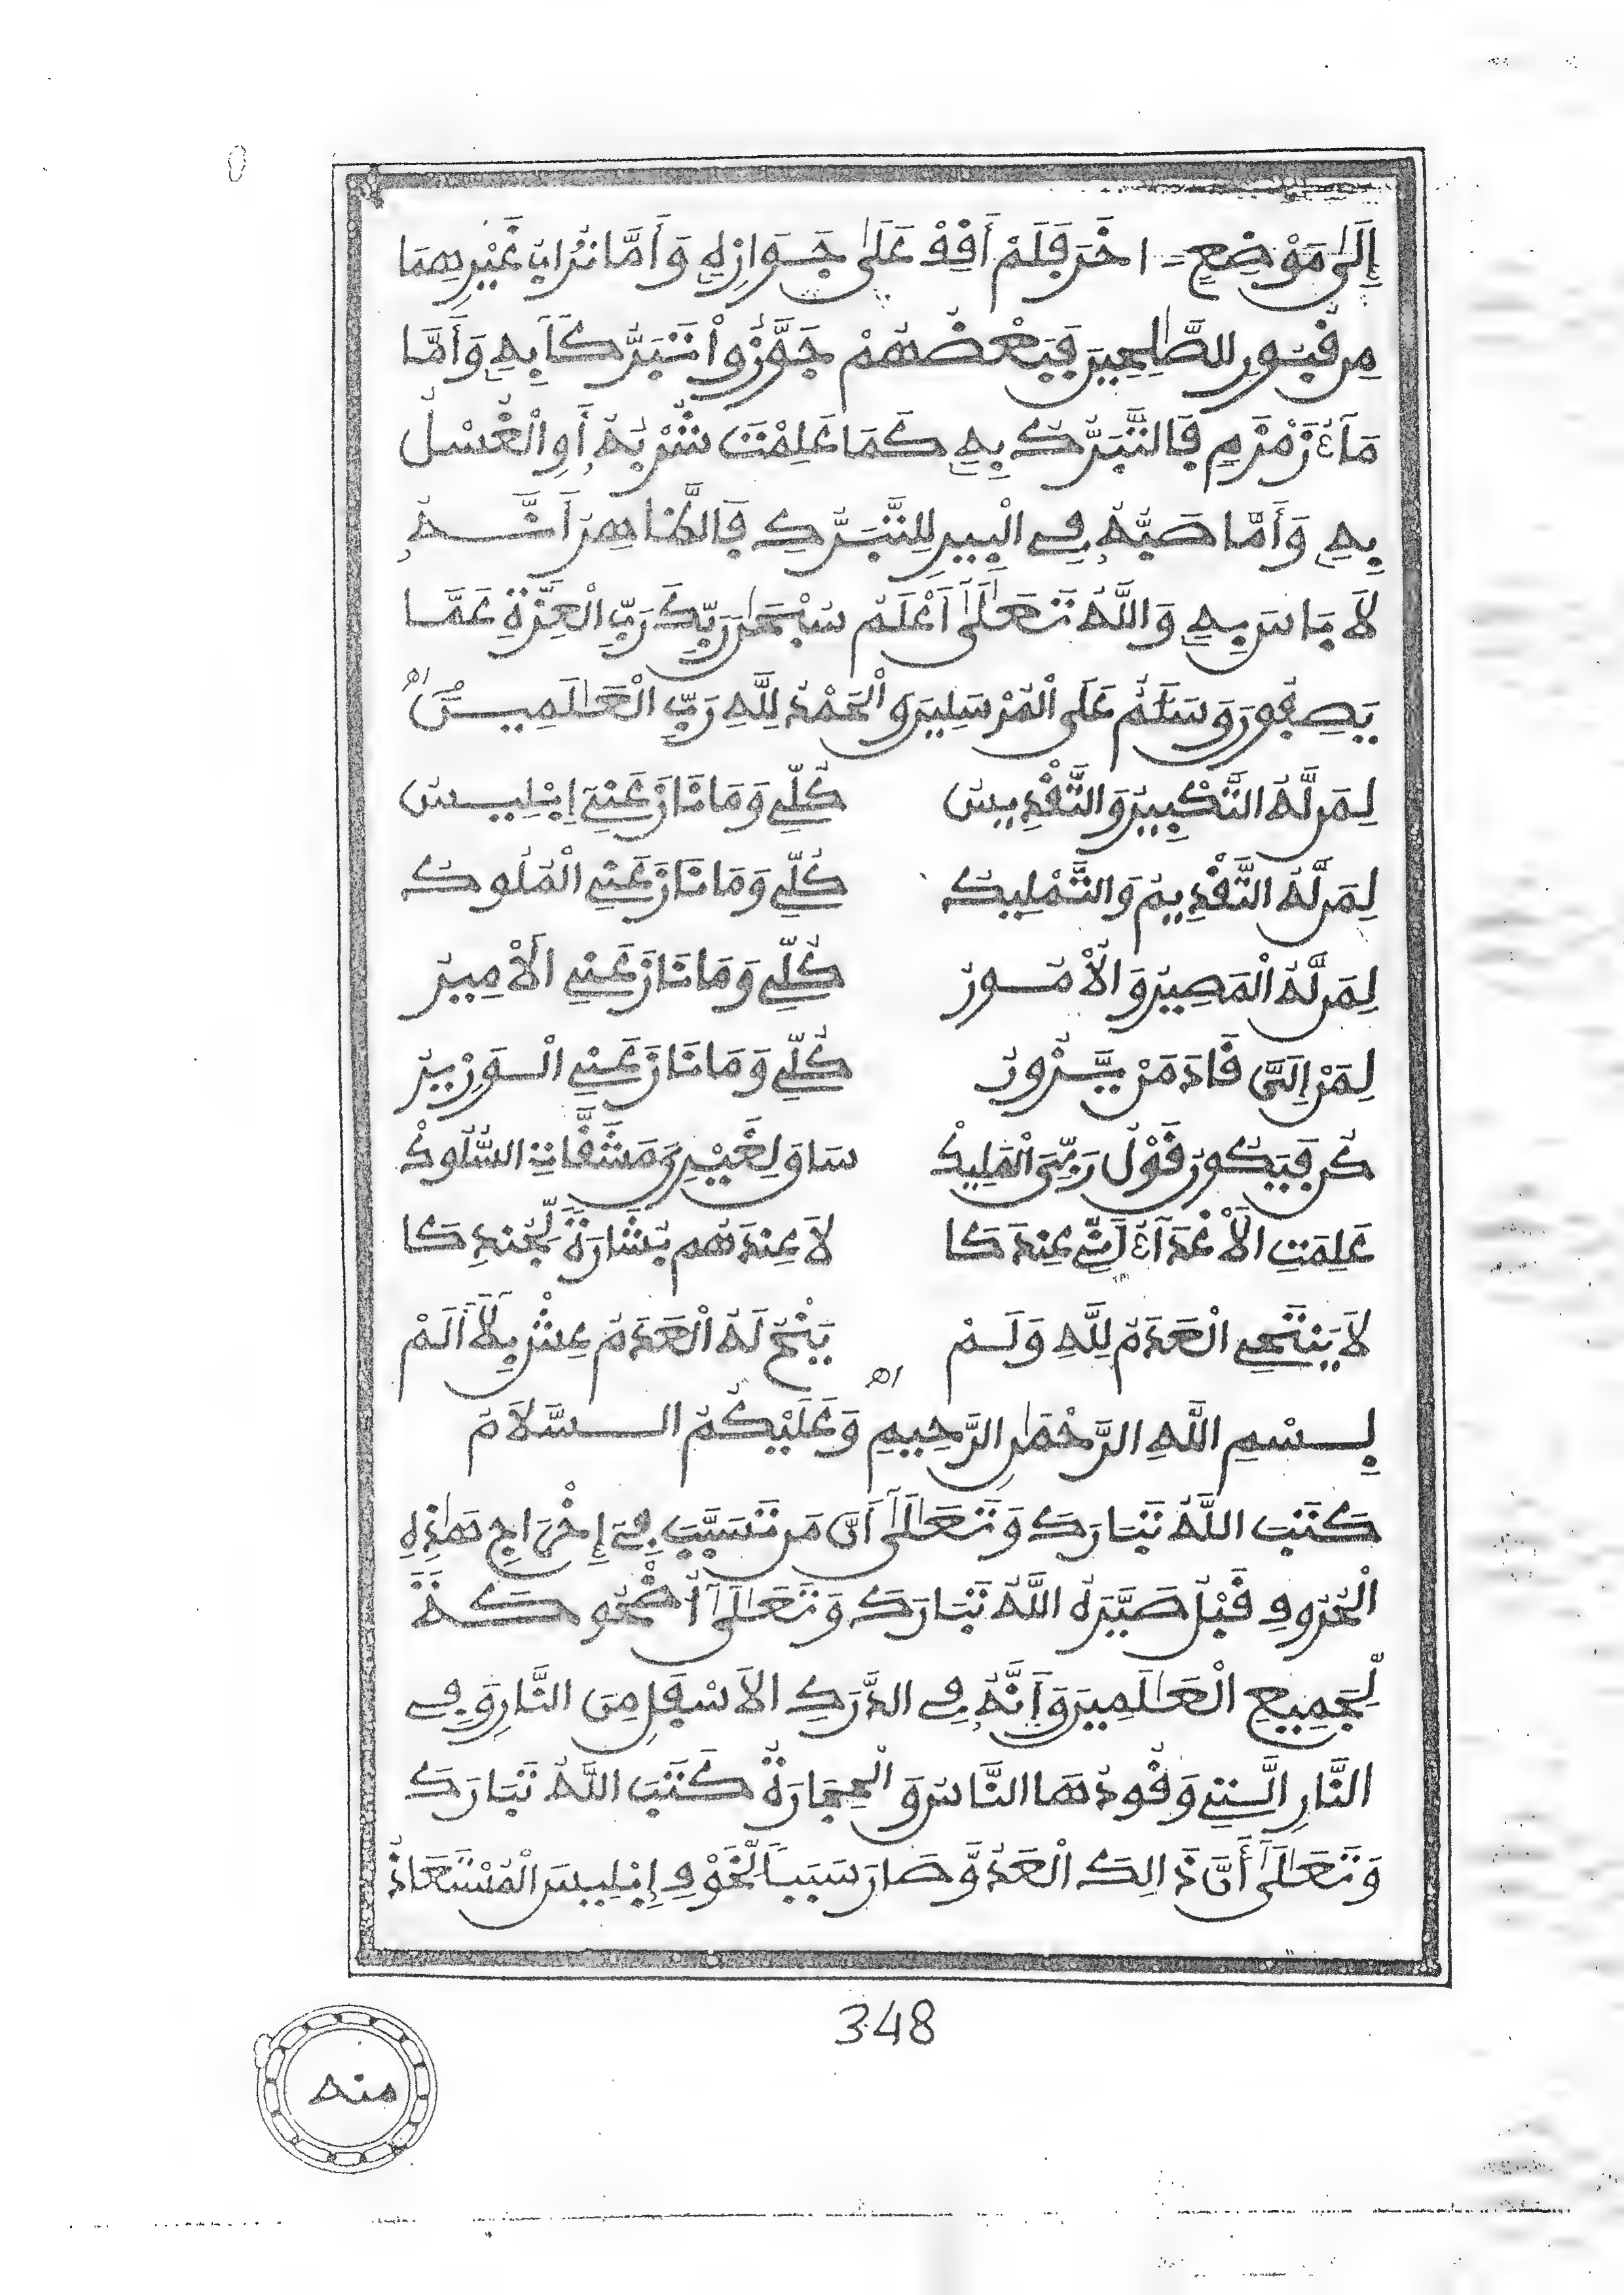 إِلَى مَوْضِعٍ = اخَرَ فَلَمْ أَقِفْ عَلَى جَوَازِهِ وَأَمَّا تُرَابُ غَيْرِهِمَا
مِن قُبُورِ الصَّٰلِحِينَ فَبَعْضُهُمْ جَوَّزُواْ تَبَرُّكاً بِهِ وَأَمَّا
مَآءُ زَمْزَمٍ فَالتَّبَرُّكُ بِهِ كَمَا عَلِمْتَ شُرْبُهُ أَوِ الْغُسْلُ
بِهِ وَأَمَّا صَبُّهُ فِي الْبِيرِ لِلتَّبَرُّكِ فَالظَّاهِرُ أَنَّهُ
لاَ بَاسَ بِهِ وَاللَّهُ تَعَٰلَى أَعْلَمُ سُبْحَٰنَ رَبِّكَ رَبِّ الْعِزَّةِ عَمَّا
يَصِفُونَ وَسَلَٰمٌ عَلَى الْمُرْسَلِينَ وَالْحَمْدُ لِلَّهِ رَبِّ الْعَٰلَمِينَ اهـ
لِمَن لَّهُ التَّكْبِيرُ وَالتَّقْدِيسُ كُلِّي وَمَا نَازَعَنِي إِبْلِيسُ
لِمَن لَّهُ التَّقْدِيمُ وَالتَّمْلِيكُ كُلِّي وَمَا نَازَعَنِي الْمُلُوكُ
لِمَن لَّهُ الْمَصِيرُ وَالأُمُورُ كُلِّي وَمَا نَازَعَنِي الأَمِيرُ
لِمَنْ إِلَىَّ قَادَ مَنْ يَّزُورُ كُلِّي وَمَا نَازَعَنِي الْوَزِيرُ
كُن فَيَكُونُ قَوْلُ رَبِّيَ الْمَلِيكْ سَاقَ لِغَيْرِي مَشَقَّاتِ السُّلُوكْ
عَلِمَتِ الأَعْدَآءُ أَنِّي عِندَكَا لاَ عِندَهُم بِشَارَةً لِّجُندِكَا
لاَ يَنْتَحِي الْعَدَمُ لِلَّهِ وَلَمْ يَنْحُ لَهُ الْعَدَمُ عِشْ بِلاَ أَلَمْ
اهـ
بِسْمِ اللَّهِ الرَّحْمَٰنِ الرَّحِيمِ وَعَلَيْكُمُ السَّلاَمُ
كَتَبَ اللَّهُ تَبَارَكَ وَتَعَٰلَى أَنَّ مَن تَسَبَّبَ فِي إِخْرَاجِ هَٰذِهِ
الْحُرُوفِ قَبْلُ صَيَّرَهُ اللَّهُ تَبَارَكَ وَتَعَٰلَى أُضْحُوكَةً
لِّجَمِيعِ الْعَٰلَمِينَ وَأَنَّهُ فِي الدَّرَكِ الاَسْفَلِ مِنَ النَّارِ وَفِي
النَّارِ الَّتِي وَقُودُهَا النَّاسُ وَالْحِجَارَةُ كَتَبَ اللَّهُ تَبَارَكَ
وَتَعَٰلَى أَنَّ ذَالِكَ الْعَدُوَّ صَارَ سَبَباً لِّخَوْفِ إِبْلِيسَ الْمُسْتَعَاذُ
348
منه